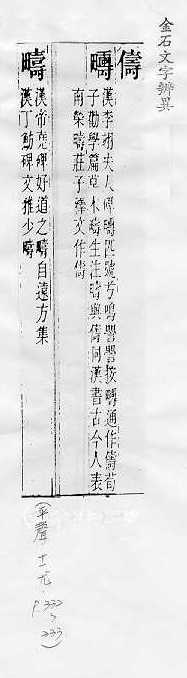 金石文字辨異
儔
疇 漢李翊夫人碑疇匹號兮鳴嚶嚶按疇通作儔荀
子勸學篇草木疇生注疇與儔同漢書古今人表
南榮疇莊子釋文作儔
疇 漢帝堯碑好道之疇自遠方集
漢丁魴碑文雅少疇
(平聲十一尤.P.332~333)